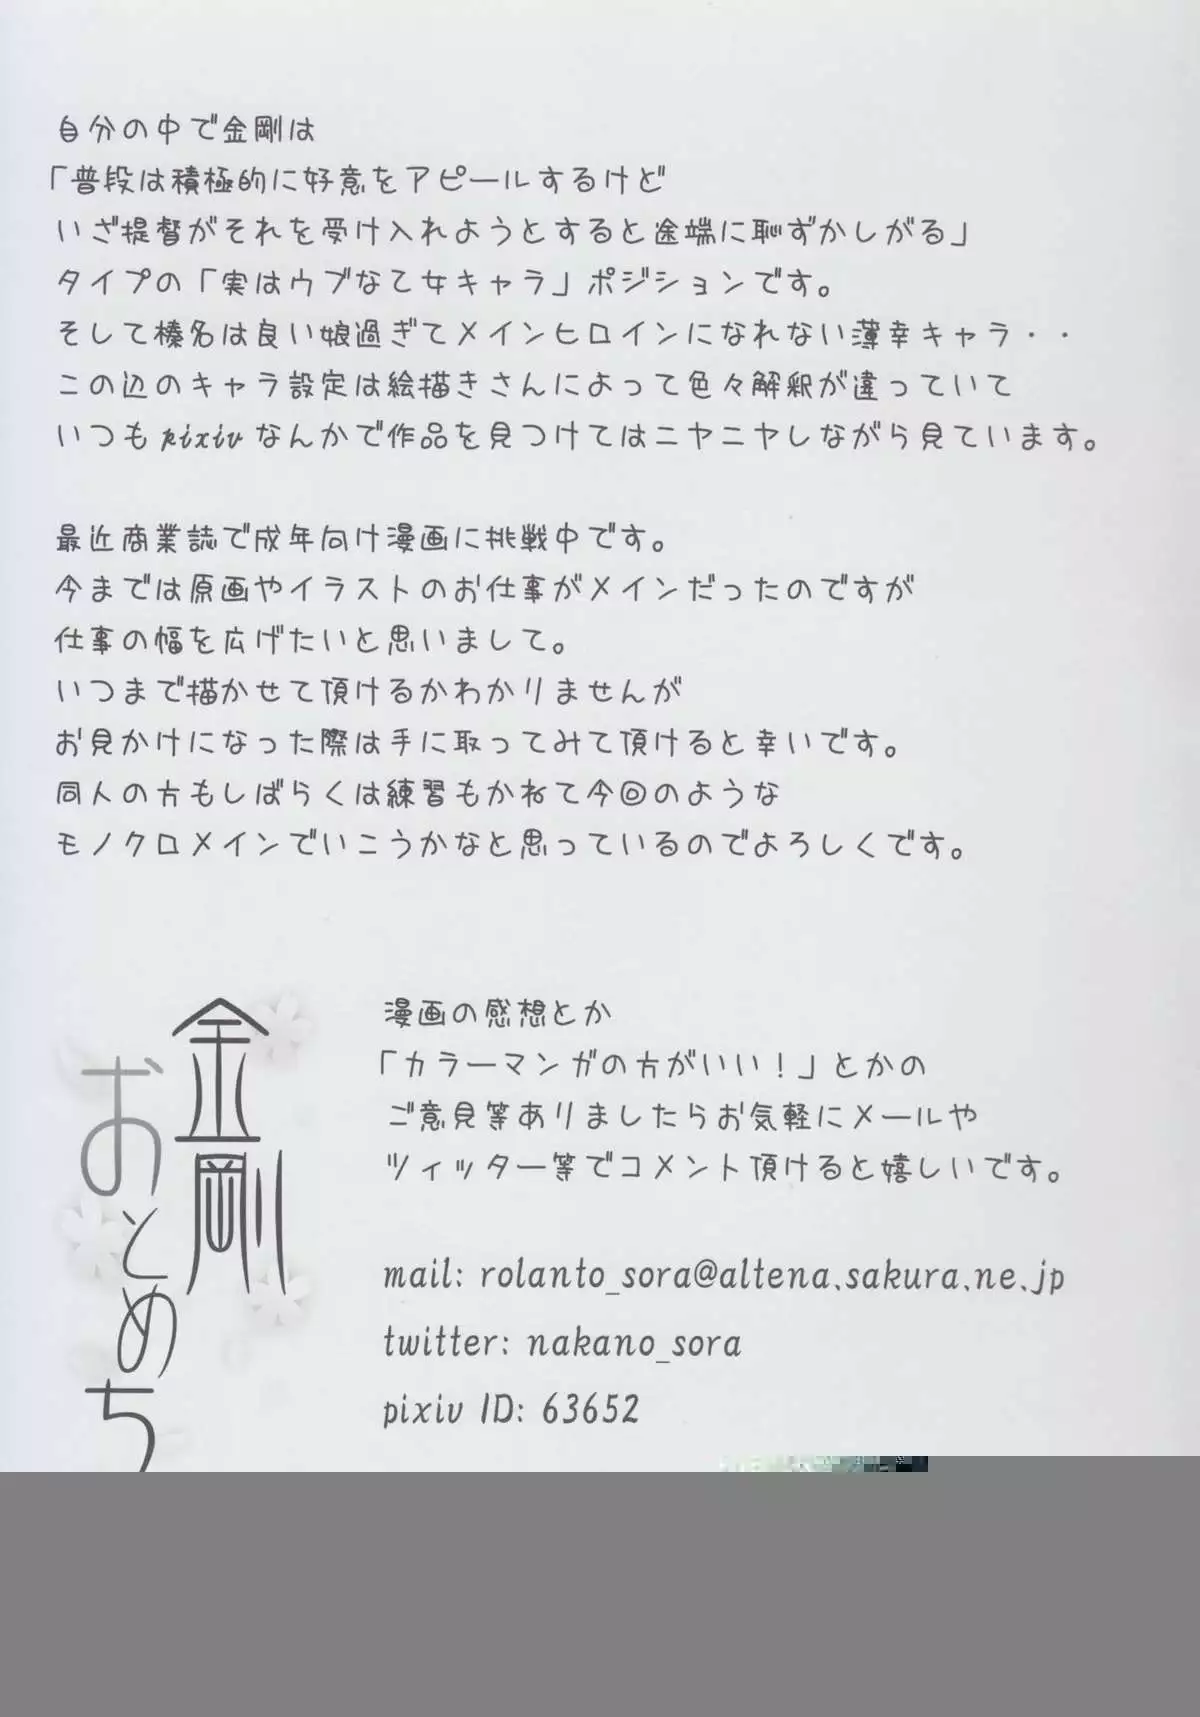 自分の中で金剛は
「普段は積極的に好意をアピールするけど
いざ提督がそれを受け入れようとすると途端に恥ずかしがる」
タイプの「実はウブな乙女キャラ」ポジションです。
そして榛名は良い娘過ぎてメインヒロインになれない薄幸キャラ・・
この辺のキャラ設定は絵描きさんによって色々解釈が違っていて
いつもpixivなんかで作品を見つけてはニヤニヤしながら見ています。
最近商業誌で成年向け漫画に挑戦中です。
今までは原画やイラストのお仕事がメインだったのですが
仕事の幅を広げたいと思いまして。
いつまで描かせて頂けるかわかりませんが
お見かけになった際は手に取ってみて頂けると幸いです。
同人の方もしばらくは練習もかねて今回のような
モノクロメインでいこうかなと思っているのでよろしくです。
金剛
おとめち
漫画の感想とか
「カラーマンガの方がいい！」とかの
ご意見等ありましたらお気軽にメールや
ツィッター等でコメント頂けると嬉しいです。
mail: rolanto_sora@altena.sakura.ne.jp
twitter: nakano_sora
pixiv ID: 63652